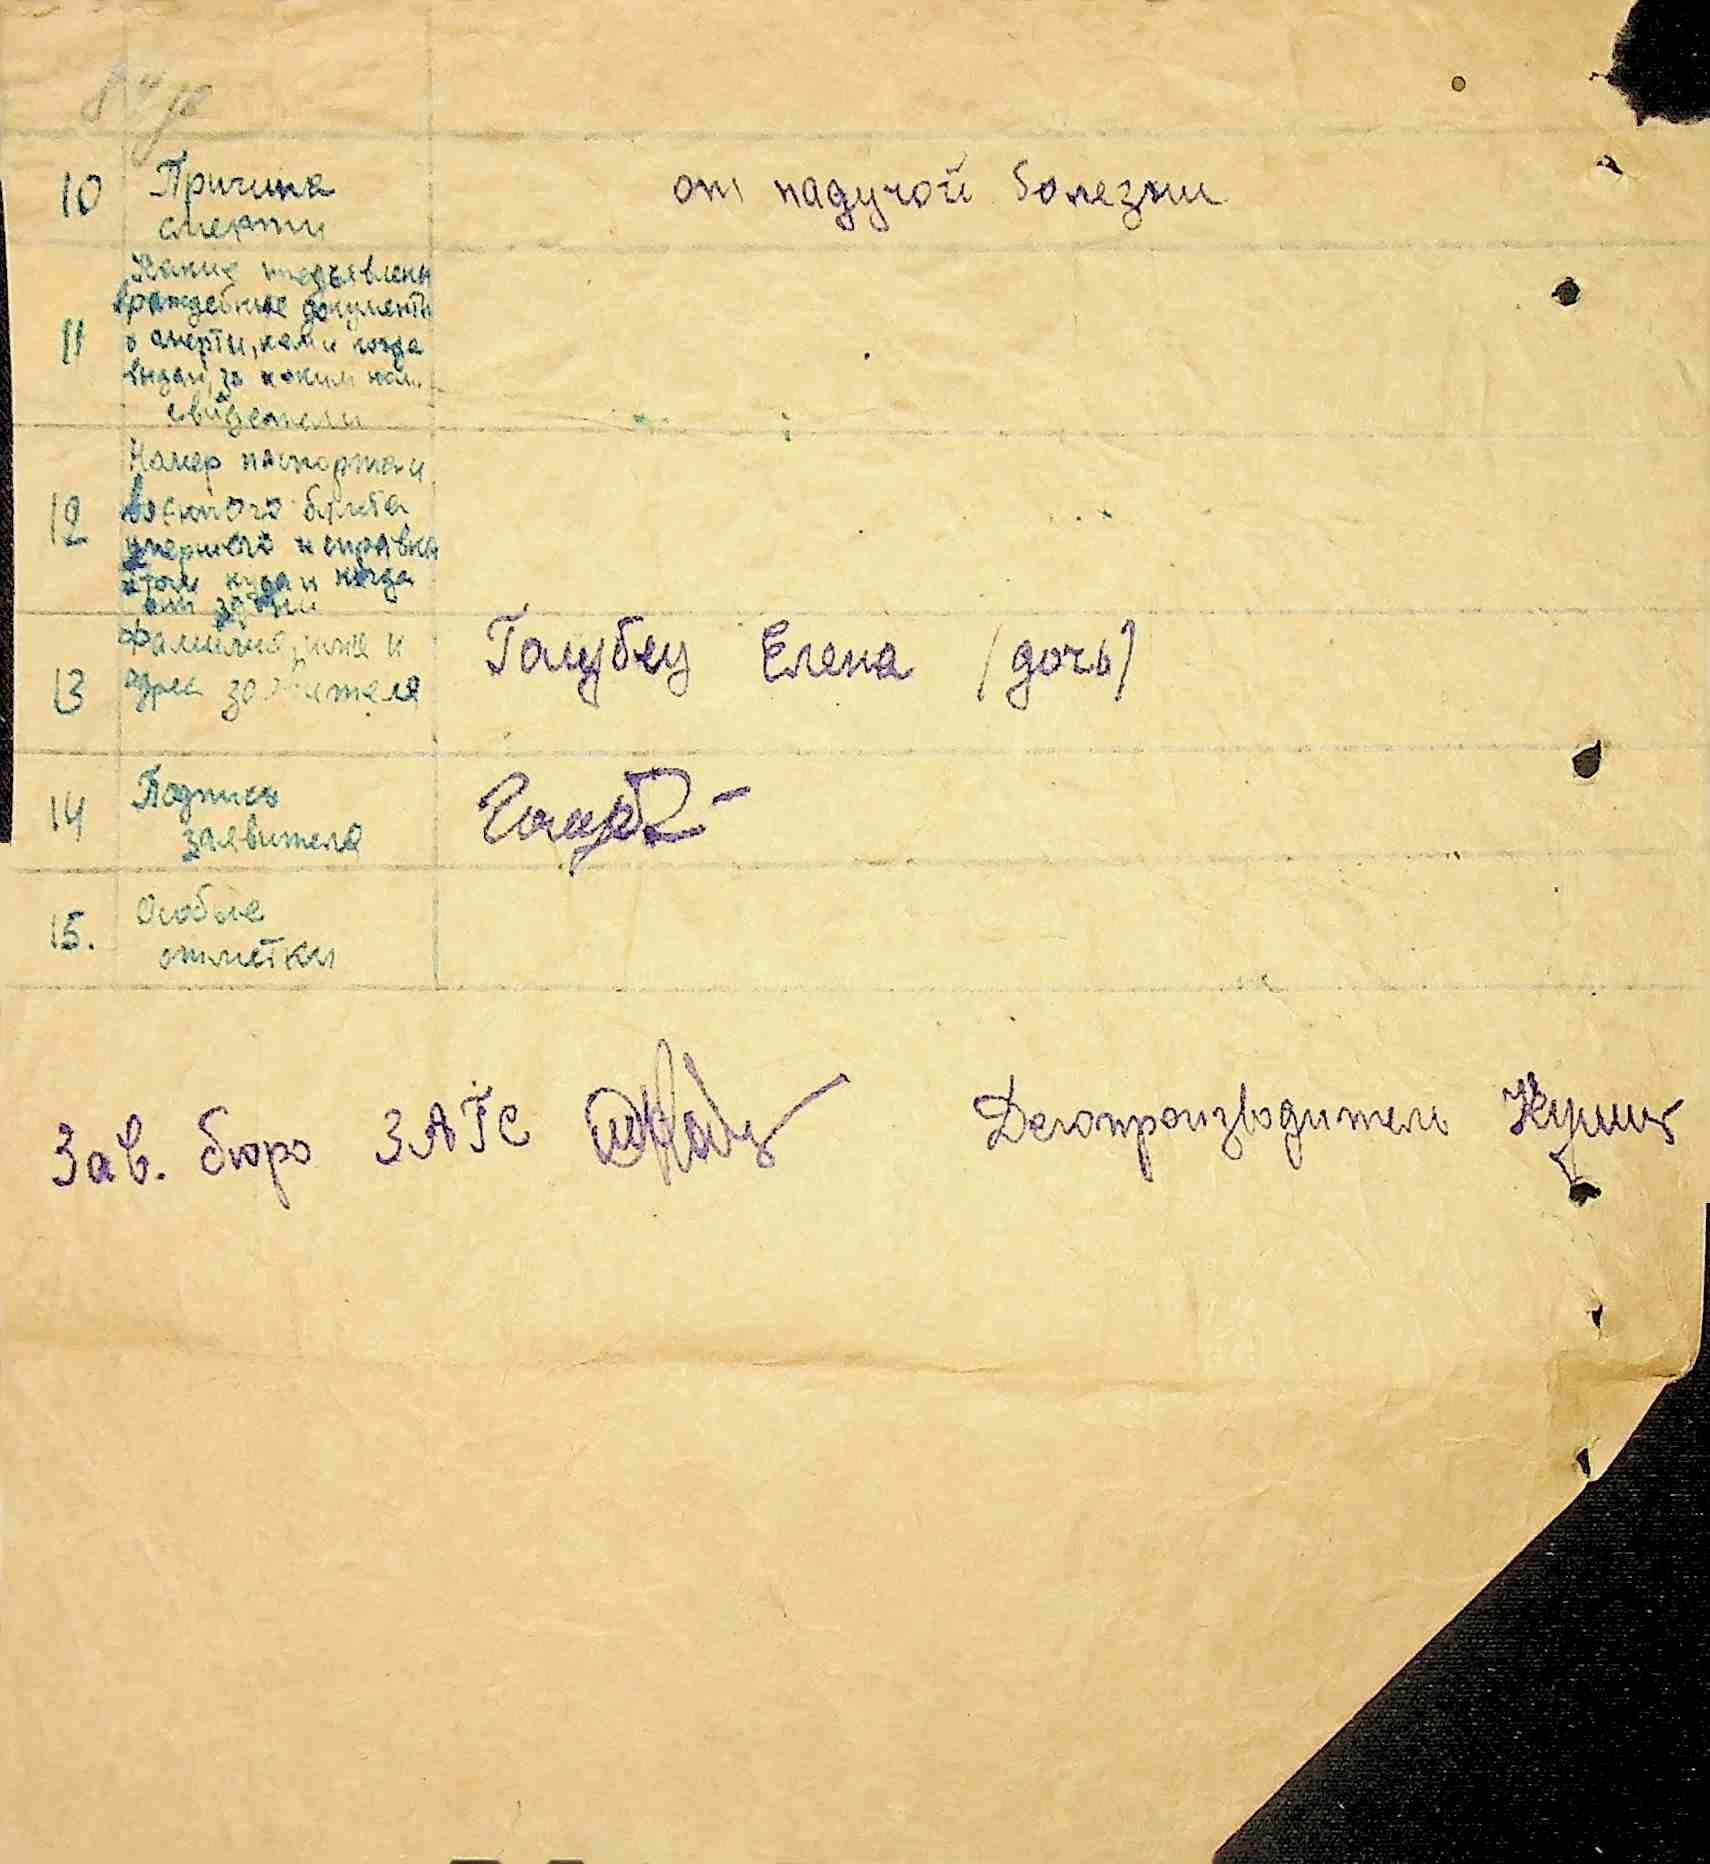 10 Причина от падучой болезни
смерти
Какие предъявлены
врачебные документы
11 о смерти, кем и когда
выдан, за каким ном.
свидетели
Номер паспорта и
12 военного билета
умершего и справка
о том куда и когда
они
Фамилия, имя и Голубец Елена (дочь)
13 адрес заявителя
14 Подпись
заявителя
15. Особые
отметки
Зав. бюро ЗАГС Делопроизводитель